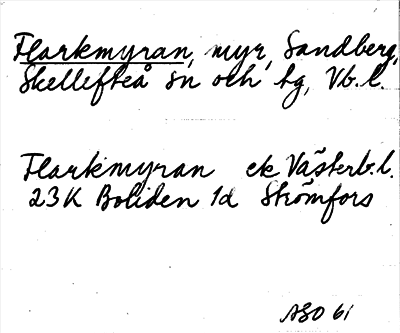 Flarkmyran, myr, Sandberg,
Skellefteå sn och tg, Vb.l.
Flarkmyran ek Västerb.l.
23K Boliden 1d Strömfors
ASO 61